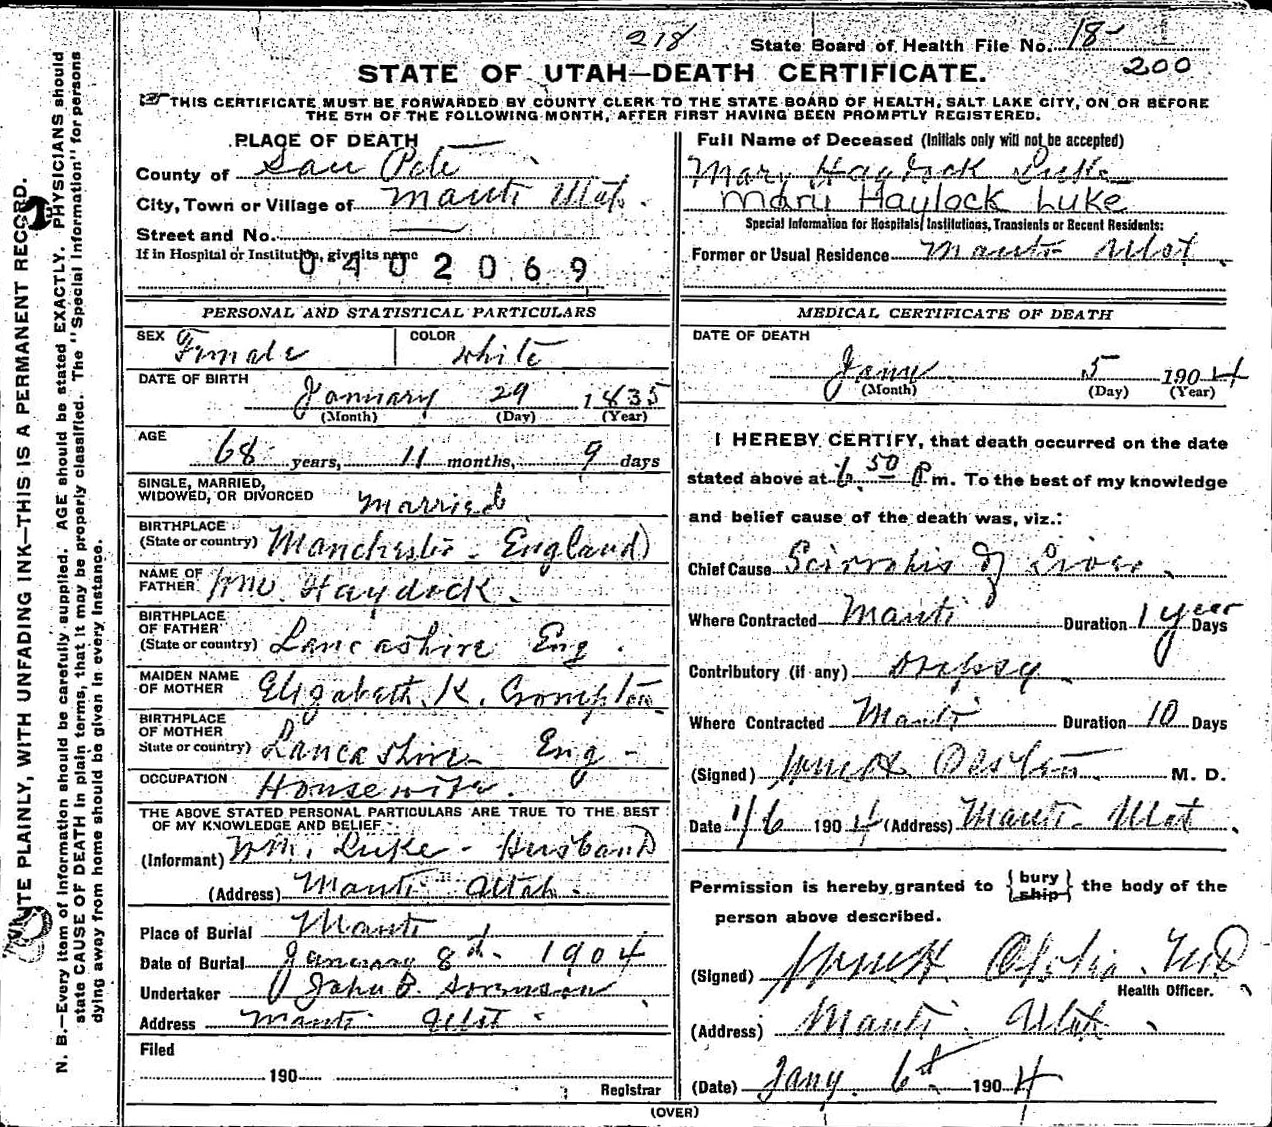 218 State Board of Health File No. 18-
200
STATE OF UTAH—DEATH CERTIFICATE.
THIS CERTIFICATE MUST BE FORWARDED BY COUNTY CLERK TO THE STATE BOARD OF HEALTH, SALT LAKE CITY, ON OR BEFORE
THE 5TH OF THE FOLLOWING MONTH, AFTER FIRST HAVING BEEN PROMPTLY REGISTERED.
PLACE OF DEATH
County of San Pete
City, Town or Village of Manti Utah.
Street and No.
If in Hospital or Institution, give its name
0402069
Full Name of Deceased (Initials only will not be accepted)
Mary Haydock Luke
Mary Haylock Luke
Special Information for Hospitals, Institutions, Transients or Recent Residents:
Former or Usual Residence Manti Utah
PERSONAL AND STATISTICAL PARTICULARS
SEX Female COLOR White
DATE OF BIRTH
January 29 1835
(Month) (Day) (Year)
AGE
68 years, 11 months, 9 days
SINGLE, MARRIED,
WIDOWED, OR DIVORCED Married
BIRTHPLACE
(State or country) Manchester - England
NAME OF
FATHER Wm. Haydock.
BIRTHPLACE
OF FATHER
(State or country) Lancashire Eng.
MAIDEN NAME
OF MOTHER Elizabeth K. Crompton
BIRTHPLACE
OF MOTHER
State or country) Lancashire Eng -
OCCUPATION Housewife.
THE ABOVE STATED PERSONAL PARTICULARS ARE TRUE TO THE BEST
OF MY KNOWLEDGE AND BELIEF
(Informant) Wm. Luke - Husband
(Address) Manti Utah.
Place of Burial Manti
Date of Burial January 8th - 1904
Undertaker John B. Sorenson
Address Manti Utah
Filed
190
Registrar
MEDICAL CERTIFICATE OF DEATH
DATE OF DEATH
Jany 5 1904
(Month) (Day) (Year)
I HEREBY CERTIFY, that death occurred on the date
stated above at 6.50 P m. To the best of my knowledge
and belief cause of the death was, viz.:
Chief Cause of Liver
Where Contracted Manti Duration 1 year Days
Contributory (if any) Dropsy
Where Contracted Manti Duration 10 Days
(Signed) M. D.
Date 1/6 1904 (Address) Manti - Utah
Permission is hereby granted to {bury ship} the body of the
person above described.
(Signed) MD
Health Officer.
(Address) Manti. Utah
(Date) Jany. 6th 1904
(OVER)
N. B.—Every item of information should be carefully supplied. AGE should be stated EXACTLY. PHYSICIANS should
state CAUSE OF DEATH in plain terms, that it may be properly classified. The "Special Information" for persons
dying away from home should be given in every instance.
WRITE PLAINLY, WITH UNFADING INK—THIS IS A PERMANENT RECORD.